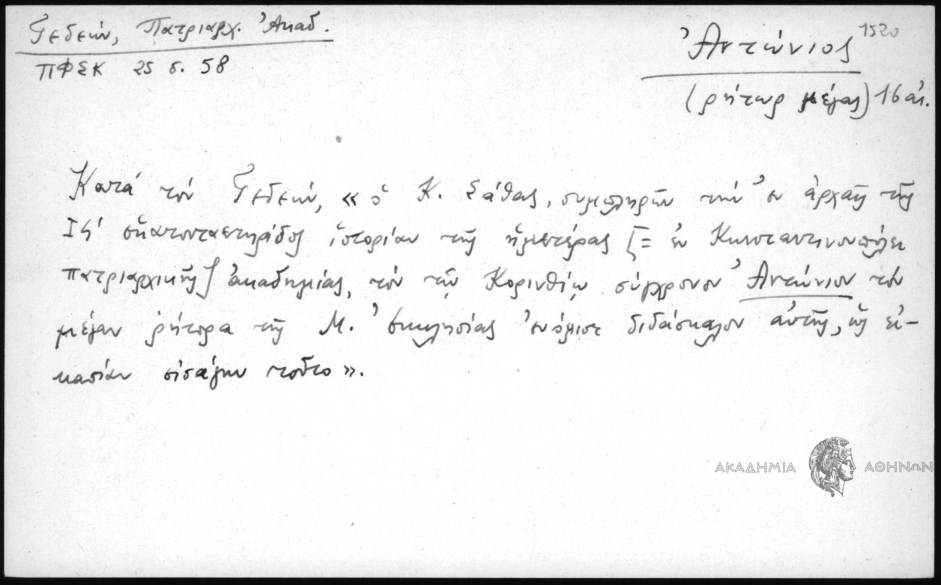 Γεδεών, Πατριαρχ. Ἀκαδ.
ΠΦΣΚ 25 σ. 58
1520
Ἀντώνιος
(ῥήτωρ μέγας) 16 αἰ.
Κατά τον Γεδεών, « ὁ Κ. Σάθας, συμπληρῶν τήν ἐν ἀρχαῖς τῆς
ΙϚʹ ἑκατονταετηρίδος ἱστορίαν τῆς ἡμετέρας [= ἐν Κωνσταντινουπόλει
πατριαρχικῆς] ἀκαδημίας, τόν τῷ Κορινθίῳ σύγχρονον Ἀντώνιον τόν
μέγαν ῥήτορα τῆς Μ. Ἐκκλησίας ἐνόμισε διδάσκαλον αὐτῆς, ὡς εἰ-
κασίαν εἰσάγων τοῦτο ».
ΑΚΑΔΗΜΙΑ ΑΘΗΝΩΝ